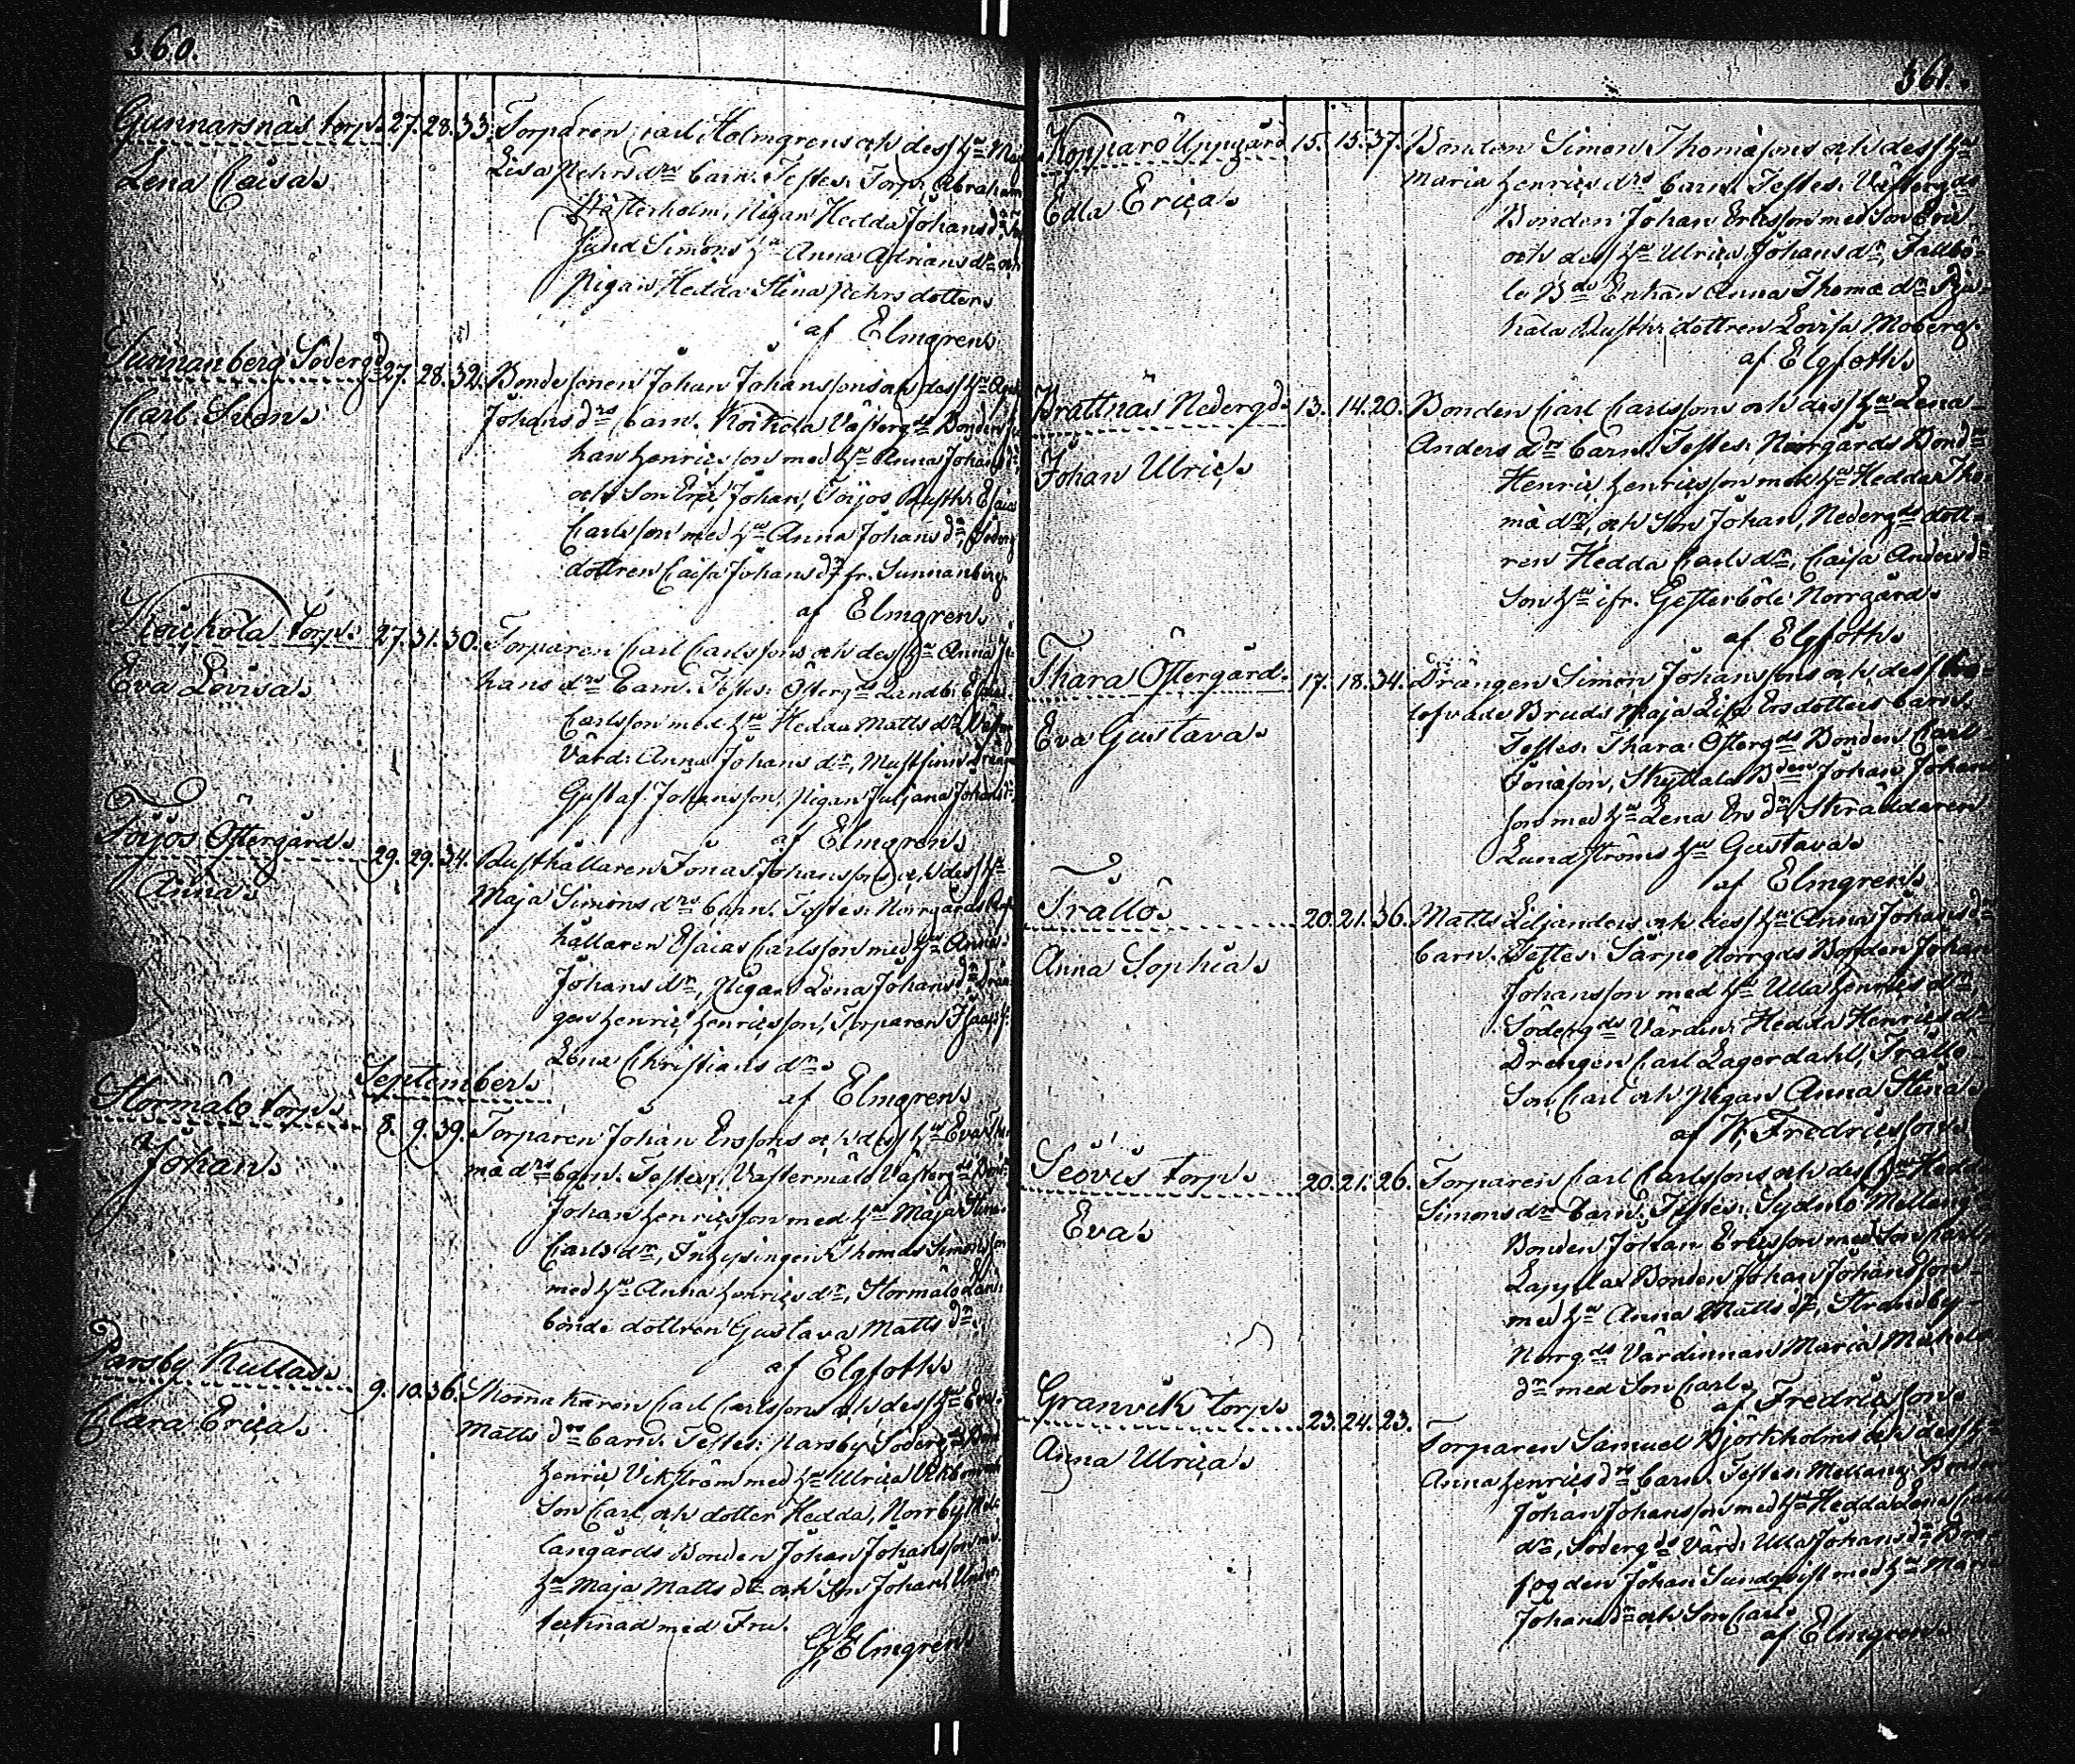 360.
Gunnarsnäs torp. 27. 28. 33. Torparen Carl Holmgrens och dess h:u
Lena Caisa. Lisa Mehrsd:rs barn. Testes: Torp: Abraham
Westerholm, Pigan Hedda Johansd:r
Sund Simons h:u Anna Adriansd:r och
Pigan Hedda Stina Mehrsdotter.
af Elmgren.
Sunnanberg Söderg:d 27. 28. 32. Bondesonen Johan Johanssons och dess h:u
Carl Sven. Johansd:rs barn. Koikola Västerg:ds Bonden
han Henricsson med h:u Anna Johans
och Son Eric Johan, Töijos Rusth: Esaias
Carlsson med h:u Anna Johansd:r,
dottren Caisa Johansd:r fr. Sunnanberg.
af Elmgren.
Koikola torp. 27. 31. 30. Torparen Carl Carlssons och dess h:u Anna
Eva Lovisa. hansd:rs barn. Testes: Österg:ds Landb: Esaias
Carlsson med h:u Hedda Mattsd:r,
Värd: Anna Johansd:r, Mustfinn
Gustaf Johansson, Pigan Juljana Johans
af Elmgren.
Töijos Östergård. 29. 29. 34. Rusthållaren Jonas Johanssons och dess h:u
Anna. Maja Simonsd:rs barn. Testes: Norrgårds
hållaren Esaias Carlsson med h:u Anna
Johansd:r, Pigan Lena Johansd:r
gen Henric Henricsson, Torparen Isaacs
Lena Christiansd:r.
af Elmgren.
September.
Stormälö torp. 8. 9. 39. Torparen Johan Erssons och dess h:u Eva
Johan. mäd:rs barn. Testes: Västermälö Västerg:ds
Johan Henricsson med h:u Maja Stina
Carlsd:r, Inhysingen Thomas Simonsson
med h:u Anna Henricsd:r, Stormälö
bonde dottren Gustava Mattsd:r.
af Elgfoth.
Parsby Kullas. 9. 10. 36. Skomakaren Carl Carlssons och dess h:u Eva
Clara Erica. Mattsd:rs barn. Testes: Parsby Söderg:ds
Henric Vikström med h:u Ulrica
Son Carl och dotter Hedda, Norrby
langårds Bonden Johan Johansson
h:u Maja Mattsd:r och Son Johan,
tecknad med Fru.
Elmgren.
361.
Kopparö Uppgård 15. 15. 37. Bonden Simon Thomassons och dess h:u
Edla Erica. Maria Henricsd:rs barn. Testes: Västergds
Bonden Johan Ericsson med Son Eric
och dess h:u Ulrica Johansd:r, Fallbö-
le B:ds Enkan Anna Thomæd:r
Rusth: dottren Lovisa Moberg.
af Elgfoth.
Brattnäs Nederg:d. 13. 14. 20. Bonden Carl Carlssons och dess h:u Lena
Johan Ulric. Andersd:rs barn. Testes: Norrgårds Bond:n
Henric Henricsson med h:u Hedda Tho-
mäd:r, och Son Johan, Nederg:ds dott-
ren Hedda Carlsd:r, Caisa Andersd:r
Son h:u ifr. Gesterböle Norrgård.
af Elgfoth.
Thara Östergård. 17. 18. 34. Drängen Simon Johanssons och dess
Eva Gustava. lofvade Bruds Maja Lisa Ersdotters barn.
Testes: Thara Österg:ds Bonden Carl
Jonasson, Skyttala B:den Johan Johans
son med h:u Lena Ersd:r, Skräddaren
Lundströms h:u Gustava.
af Elmgren.
Trällö. 20. 21. 36. Matts Liljanders och dess h:u Anna Johansd:rs
Anna Sophia. barn. Testes: Särpo Norrgds Bonden Johan
Johansson med h:u Ulla Henricsd:r,
Söderg:ds Värdin: Hedda Henricsd:r
Drengen Carl Lagerdahl, Trällö
Son Carl och Pigan Anna Stina.
af Fredricsson.
Seovis torp. 20. 21. 26. Torparen Carl Carlssons och dess h:u Hedda
Eva. Simonsd:rs barn. Testes: Sydmo Mellang
Bonden Johan Ericsson med Son Carl,
Lapplax Bonden Johan Johansson
med h:u Anna Mattsd:r, Strandby
Norrg:ds Värdinnan Maria Michels
d:r med Son Carl.
af Fredricsson.
Granvik torp. 23. 24. 23. Torparen Samuel Björkholms och dess h:u
Anna Ulrica. Anna Henricsd:rs barn. Testes: Mellang: Bonden
Johan Johansson med h:u Hedda Lena Carls
d:r, Söderg:ds Värd: Ulla Johansd:r
fogden Johan Sundqvist med h:u Maria
Johansd:r och Son Carl.
af Elmgren.